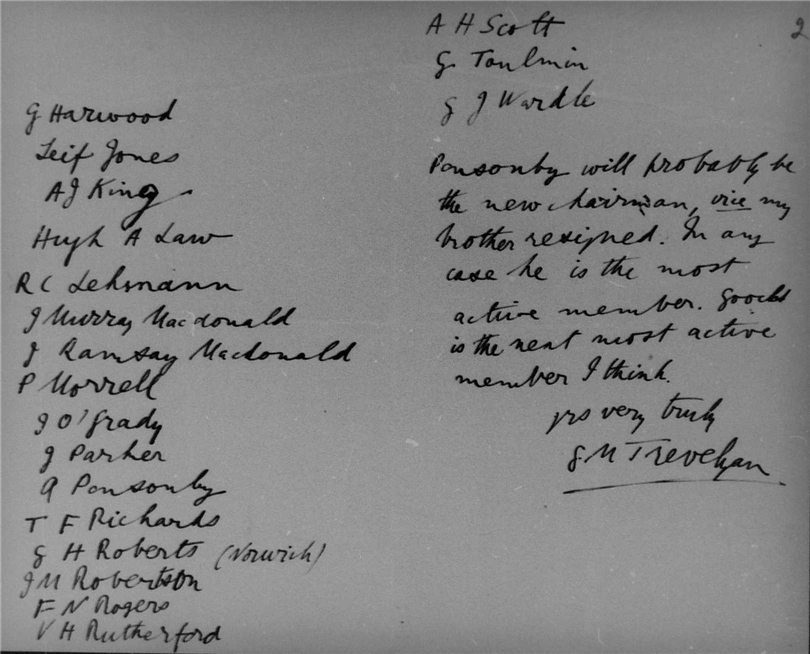 G Harwood
Leif Jones
A J King
Hugh A Law
R C Lehmann
J Murray Macdonald
J Ramsay Macdonald
P Morrell
J O'Grady
J Parker
A Ponsonby
T F Richards
G H Roberts (Norwich)
J M Robertson
F N Rogers
V H Rutherford
2
A H Scott
G Toulmin
G J Wardle
Ponsonby will probably be
the new chairman, vice my
brother resigned. In any
case he is the most
active member. Gooch
is the next most active
member I think.
yrs very truly
G M Trevelyan